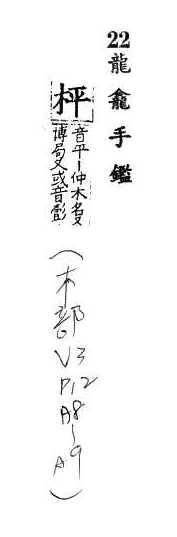 22龍龕手鑑
枰
音平丨仲木名又
博局又或音彭
(木部V3P12A8~A9)